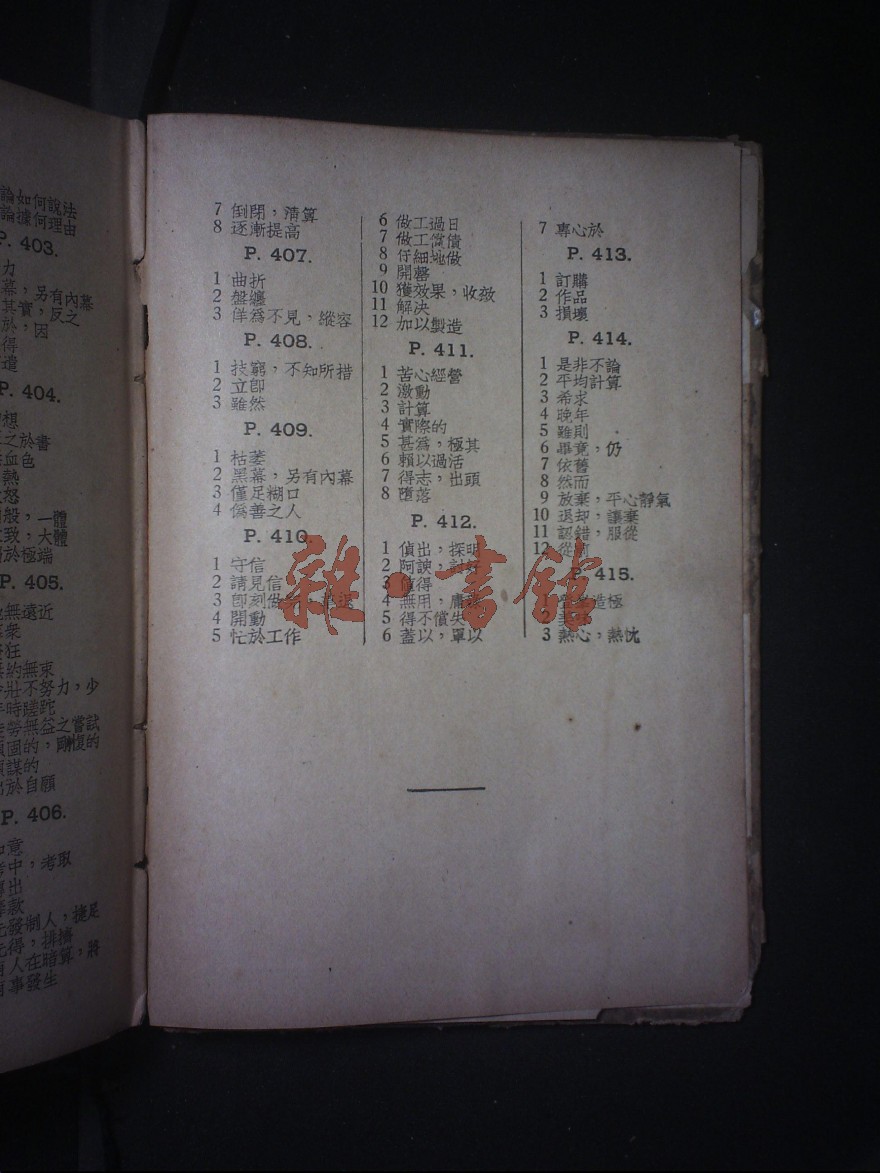 論如何說法
論據何理由
P. 403.
力
幕，另有內幕
其實，反之
於，因
得
造
P. 404.
想
之於書
血色
熱
怒
般，一體
致，大體
於極端
P. 405.
無遠近
衆
狂
約無束
壯不努力，少
時蹉跎
勞無益之嘗試
固的，剛愎的
謀的
出於自願
P. 406.
如意
考中，考取
出
款
先發制人，捷足
先得，排擠
有人在暗算，將
有事發生
7 倒閉，清算
8 逐漸提高
P. 407.
1 曲折
2 盤纏
3 佯為不見，縱容
P. 408.
1 技窮，不知所措
2 立卽
3 雖然
P. 409.
1 枯萎
2 黑幕，另有內幕
3 僅足糊口
4 偽善之人
P. 410.
1 守信
2 請見信
3 卽刻做
4 開動
5 忙於工作
6 做工過日
7 做工償債
8 仔細地做
9 開罄
10 獲效果，收效
11 解決
12 加以製造
P. 411.
1 苦心經營
2 激動
3 計算
4 實際的
5 甚為，極其
6 賴以過活
7 得志，出頭
8 墮落
P. 412.
1 偵出，探明
2 阿諛，討好
3 值得
4 無用，庸
5 得不償失
6 蓋以，單以
7 專心於
P. 413.
1 訂購
2 作品
3 損壞
P. 414.
1 是非不論
2 平均計算
3 希求
4 晚年
5 雖則
6 畢竟，仍
7 依舊
8 然而
9 放棄，平心靜氣
10 退却，讓棄
11 認錯，服從
12 從前
P. 415.
1 登峯造極
2
3 熱心，熱忱
雜·書館